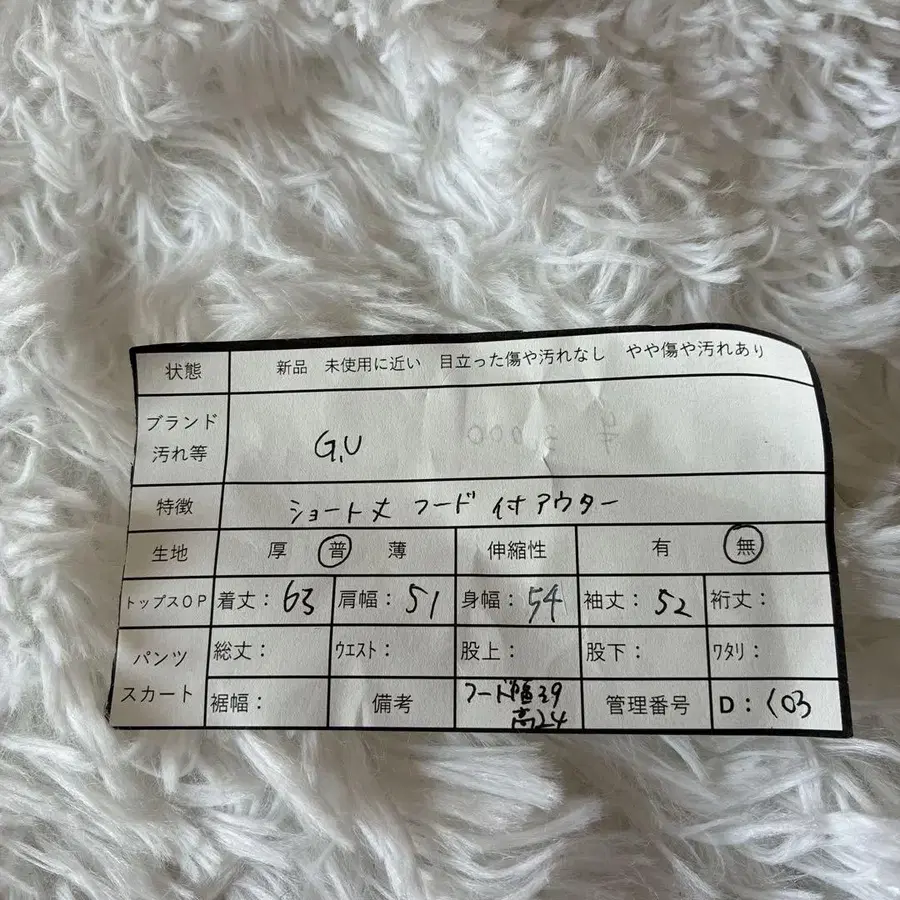 状態 新品 未使用に近い 目立った傷や汚れなし やや傷や汚れあり
ブランド
汚れ等 G.U
特徴 ショート丈 フード付アウター
生地 厚 普 薄 伸縮性 有 無
トップスOP 着丈:63 肩幅:51 身幅:54 袖丈:52 裄丈:
パンツ
スカート
総丈: ウエスト: 股上: 股下: ワタリ:
裾幅: 備考 フード幅39
高24 管理番号 D: